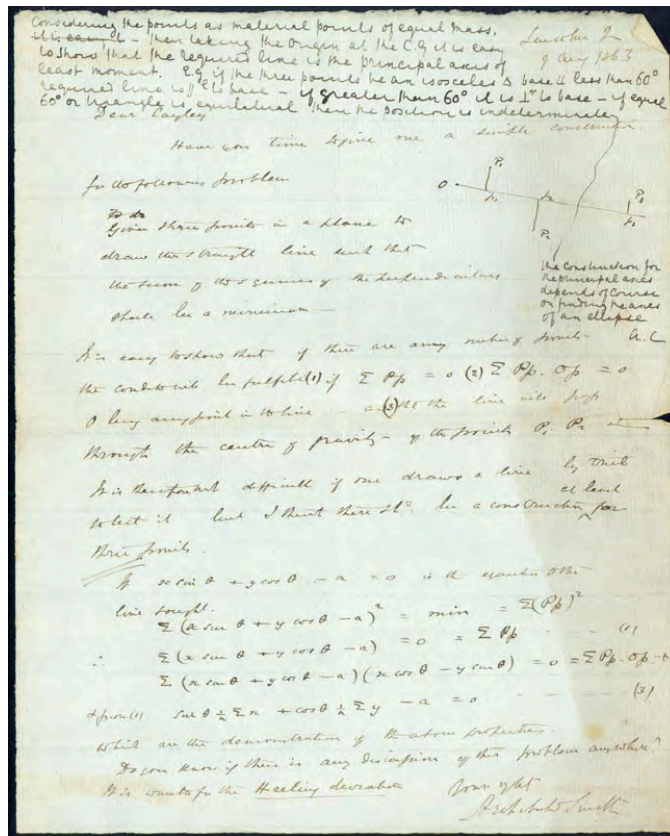 Considering the points as material points of equal mass,
it is easy, it - then taking the origin at the C.G it is easy
to show that the required line is the principal axis of
least moment. E.g. if the three points be an isosceles Δ base
required line is ∥ to base - if greater than 60° it is ⊥r to base - if equal
60° or triangle is equilateral then the position is indeterminate
Lincolns I
9 Aug 1863
Dear Cayley
Have you time to give me a simple construction
for the following problem
Given three points in a plane to
draw the straight line such that
the sum of the squares of the perpendiculars
shall be a minimum
O P p P P p
the construction for
the principal axes
depends of course
on finding the axes
of an ellipse
A.C
It is easy to show that if there are any number of points
the condition will be fulfilled (1) if Σ Pp = 0 (2) Σ Pp. Op = 0
O being any point in the line - and (3) the line will pass
through the centre of gravity of the points P₁ P₂
It is therefore not difficult if one draws a line by trial
to test it but I think there shd. be a construction for
at least
three points.
If x sin θ + y cos θ - a = 0 is the equation of the
line sought.
Σ (x sin θ + y cos θ - a)² = min = Σ(Pp)²
∴ Σ (x sin θ + y cos θ - a) = 0 = Σ Pp - - (1)
Σ (x sin θ + y cos θ - a) (x cos θ - y sin θ) = 0 = Σ Pp. Op -
& from (1) sin θ 1/n Σ x + cos θ 1/n Σ y - a = 0 - - - (3)
which are the demonstration of the above properties.
Do you know if there is any discussion of this problem anywhere?
It is wanted for the Heeling deviation
Yours
Archibald Smith